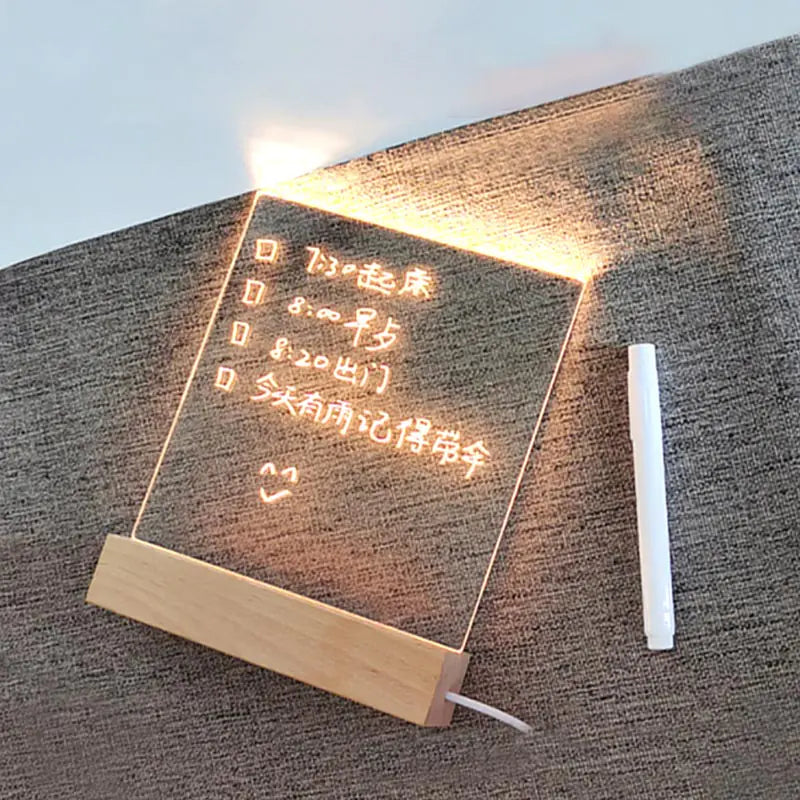 7:30起床
8:00早夕
8:20出门
今天有雨记得带伞